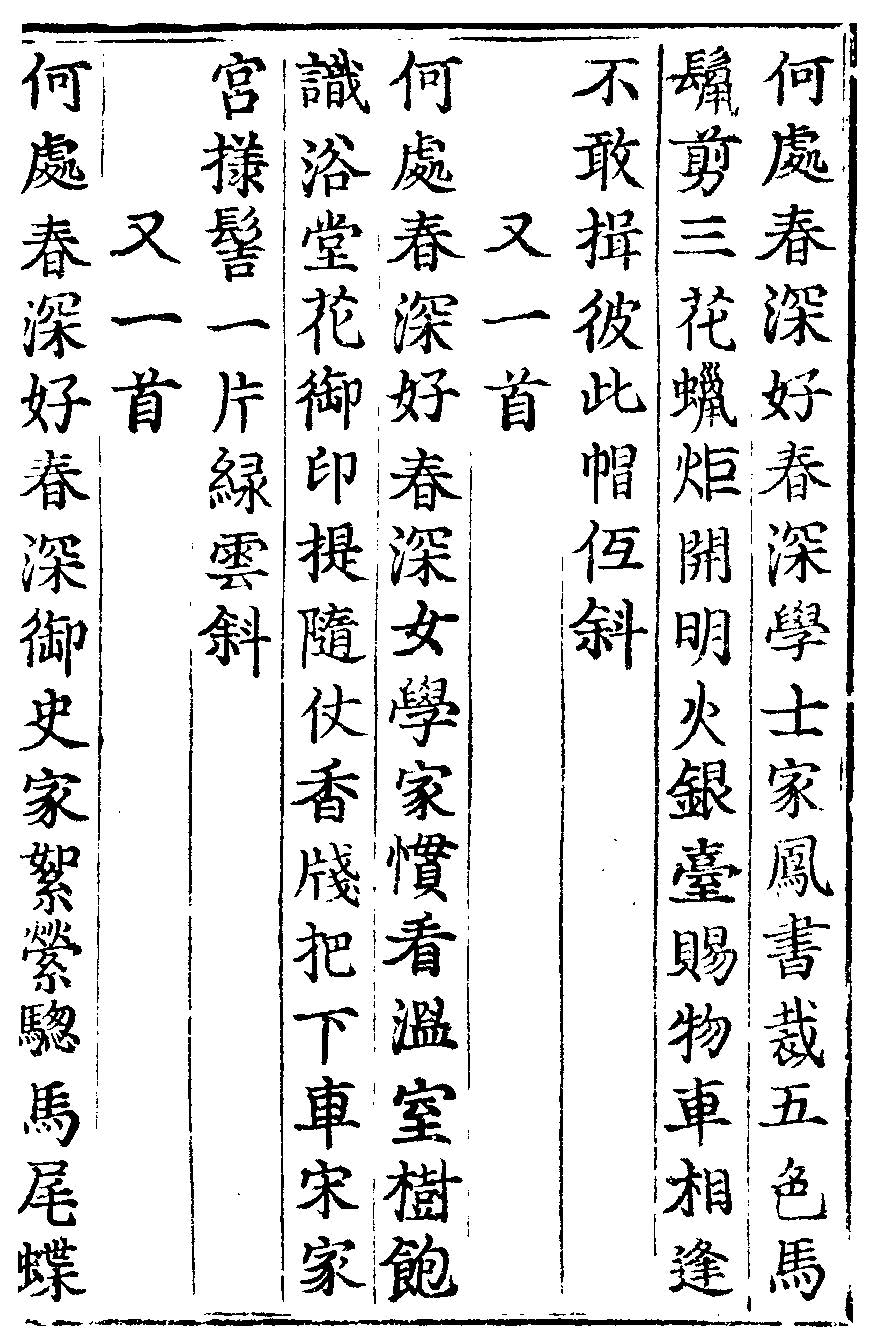 何處春深好春深學士家鳳書裁五色馬
鬣剪三花蠟炬開明火銀臺賜物車相逢
不敢揖彼此帽伍斜
又一首
何處春深好春深女學家慣看溫室樹飽
識浴堂花御印提隨仗香牋把下車宋家
宮㨾髻一片緑雲斜
又一首
何處春深好春深御史家絮縈驄馬尾蝶